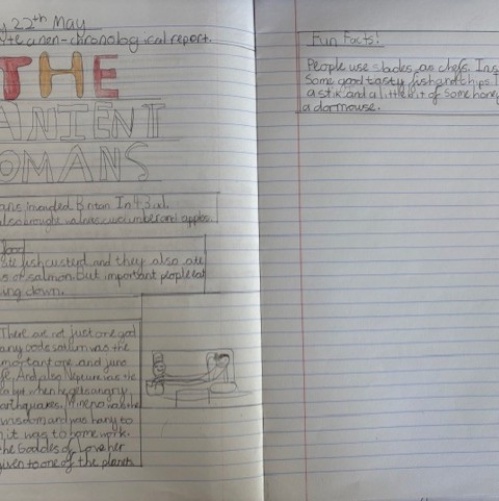 22th May
te a non-chronological report.
THE
ANIENT
OMANS
ans invaded Britan In 43
also brought cucumber and apples.
food
ate fish custyd and they also ate
s of salmon but important people eat
ing down.
There are not just one god
any gods
importantone and juno
fe. And also Nepeture was the
but when he gets angry
arthquakes. Minerva was the
wisdom and was hany to
it was to some work.
he Goddes of Love her
given to one of the planets
Fun Facts!
People use slades as chefs. Ins
Some good tasty fish and chips
a stik and a little bit of some hone
a dormouse.